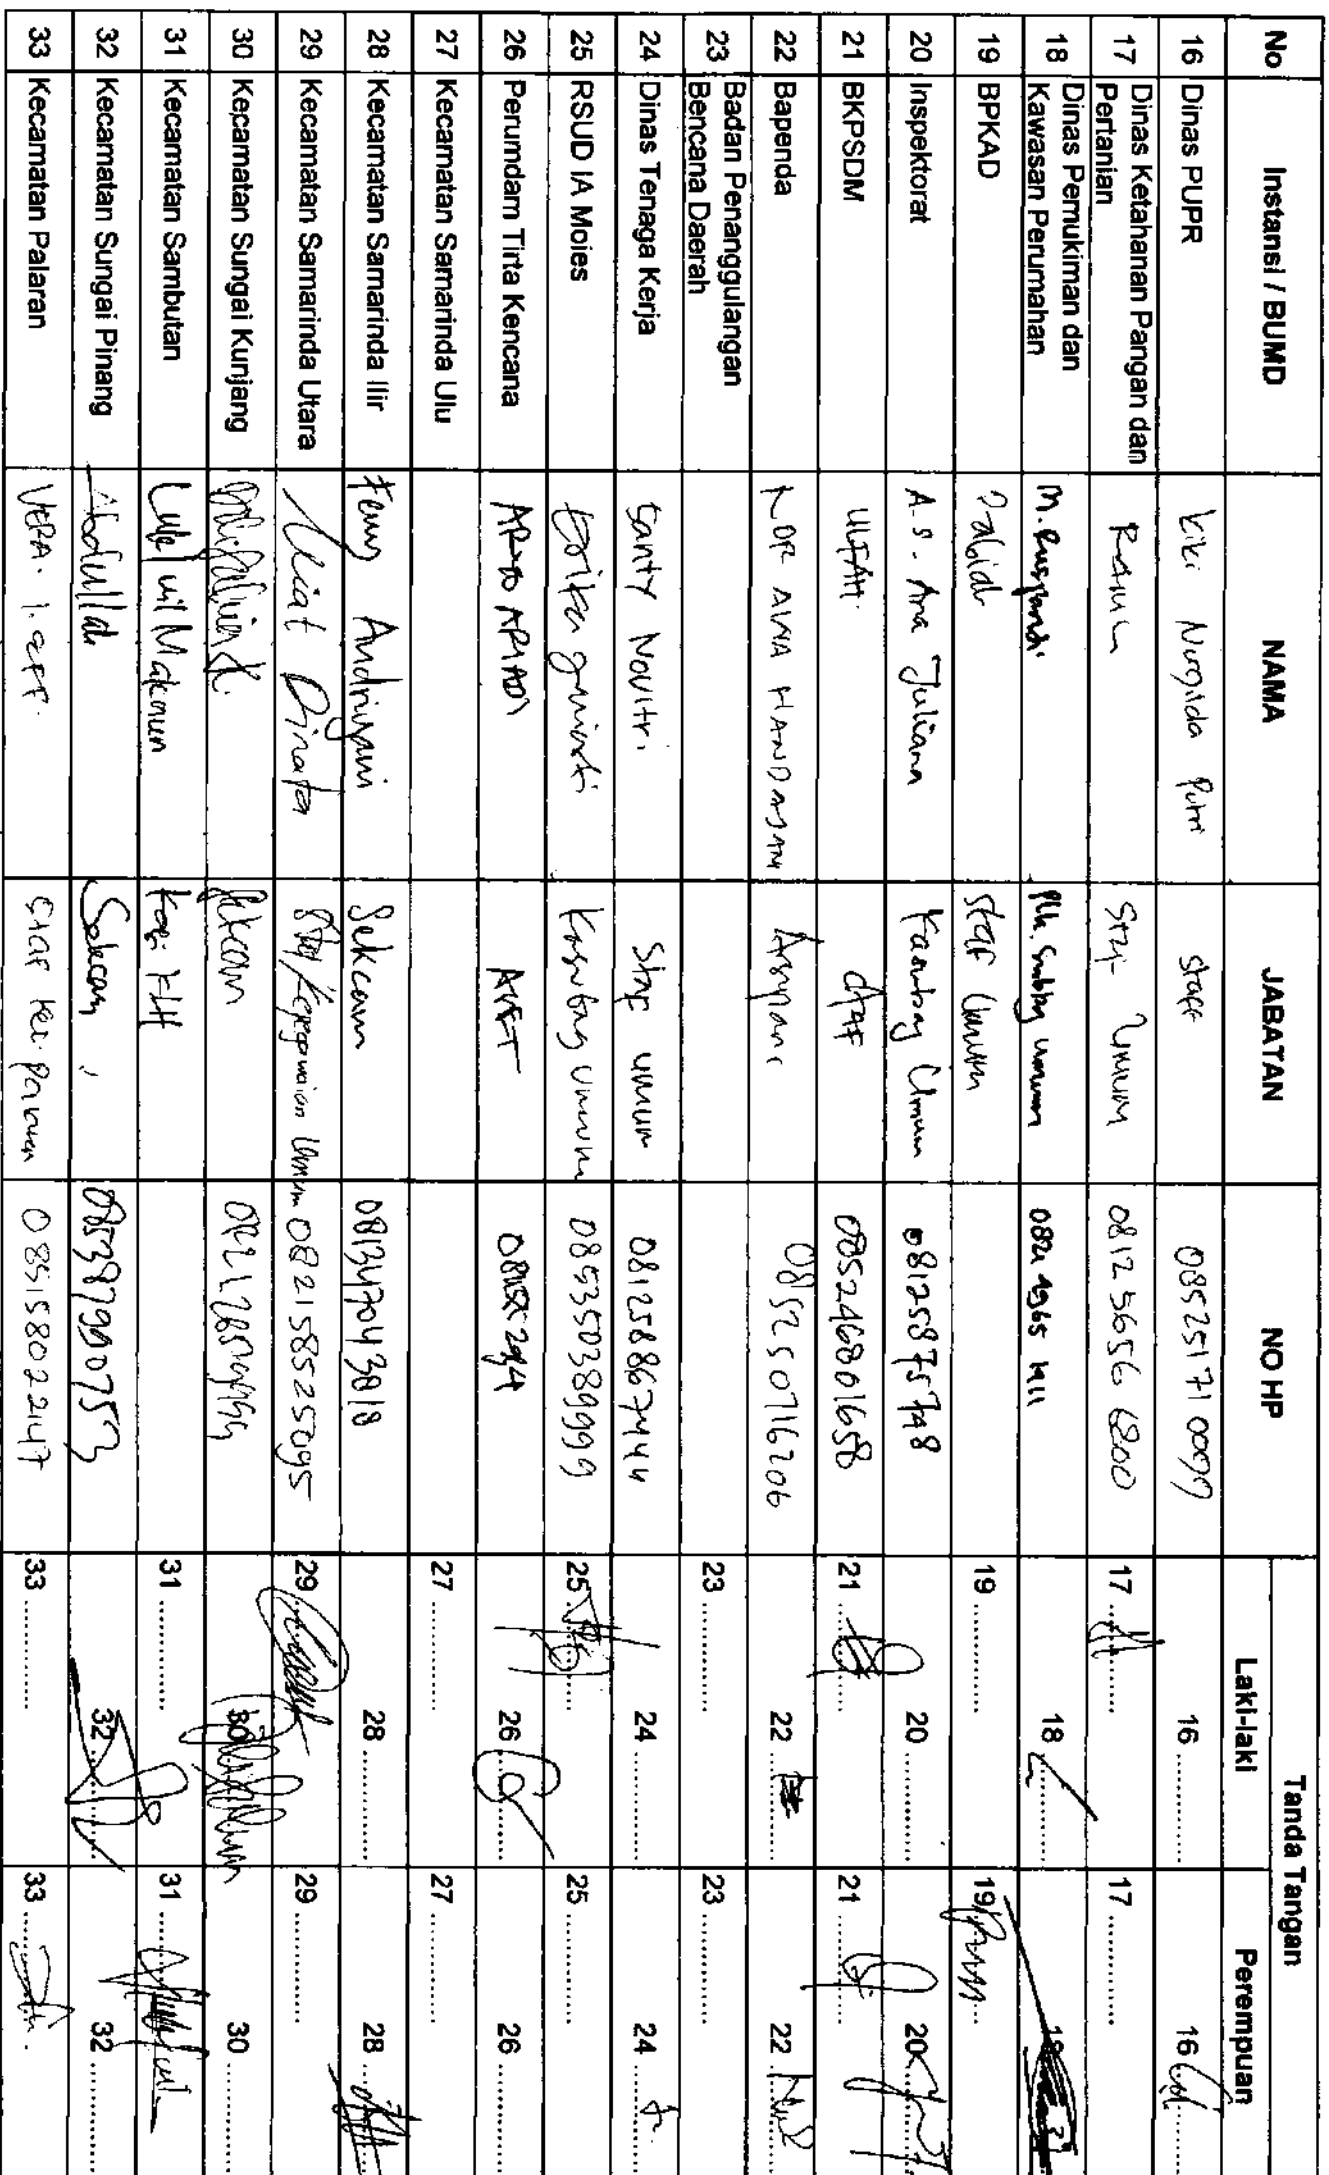 No Instansi / BUMD NAMA JABATAN NO HP Tanda Tangan
Laki-laki Perempuan
16 Dinas PUPR Kiki Nurgilda Putri Staff 16 ............ 16 ............
17 Dinas Ketahanan Pangan dan Pertanian Staf Umum 0812 5656 6800 17 ............ 17 ............
18 Dinas Pemukiman dan Kawasan Perumahan M. Rusprandi Plh. Subbag umum 18 ............
19 BPKAD Staf Umum 19 ............ 19 ............
20 Inspektorat A.S. Ana Juliana Kasubag Umum 081258757748 20 ............ 20 ............
21 BKPSDM ULFAH. Staf 21 ............ 21 ............
22 Bapenda NOR AINA HANDAYANI 085250716206 22 ............ 22 ............
23 Badan Penanggulangan Bencana Daerah 23 ............ 23 ............
24 Dinas Tenaga Kerja Santy Novitri Staf umum 081258867444 24 ............ 24 ............
25 RSUD IA Moies Kasubbag Umum 085350389999 25 ............ 25 ............
26 Perumdam Tirta Kencana APRIADI 26 ............ 26 ............
27 Kecamatan Samarinda Ulu 27 ............ 27 ............
28 Kecamatan Samarinda Ilir Feny Andriyani Sekcam 081347043818 28 ............ 28 ............
29 Kecamatan Samarinda Utara Dinata Staf Kepegawaian Umum 082158525095 29 ............ 29 ............
30 Kecamatan Sungai Kunjang Sekcam 30 ............ 30 ............
31 Kecamatan Sambutan Lulu uil Maknun Kasi 31 ............ 31 ............
32 Kecamatan Sungai Pinang Abdullah Sekcam 085387990753 32 ............ 32 ............
33 Kecamatan Palaran VERA. Staf Kec. Palaran 085158022147 33 ............ 33 ............